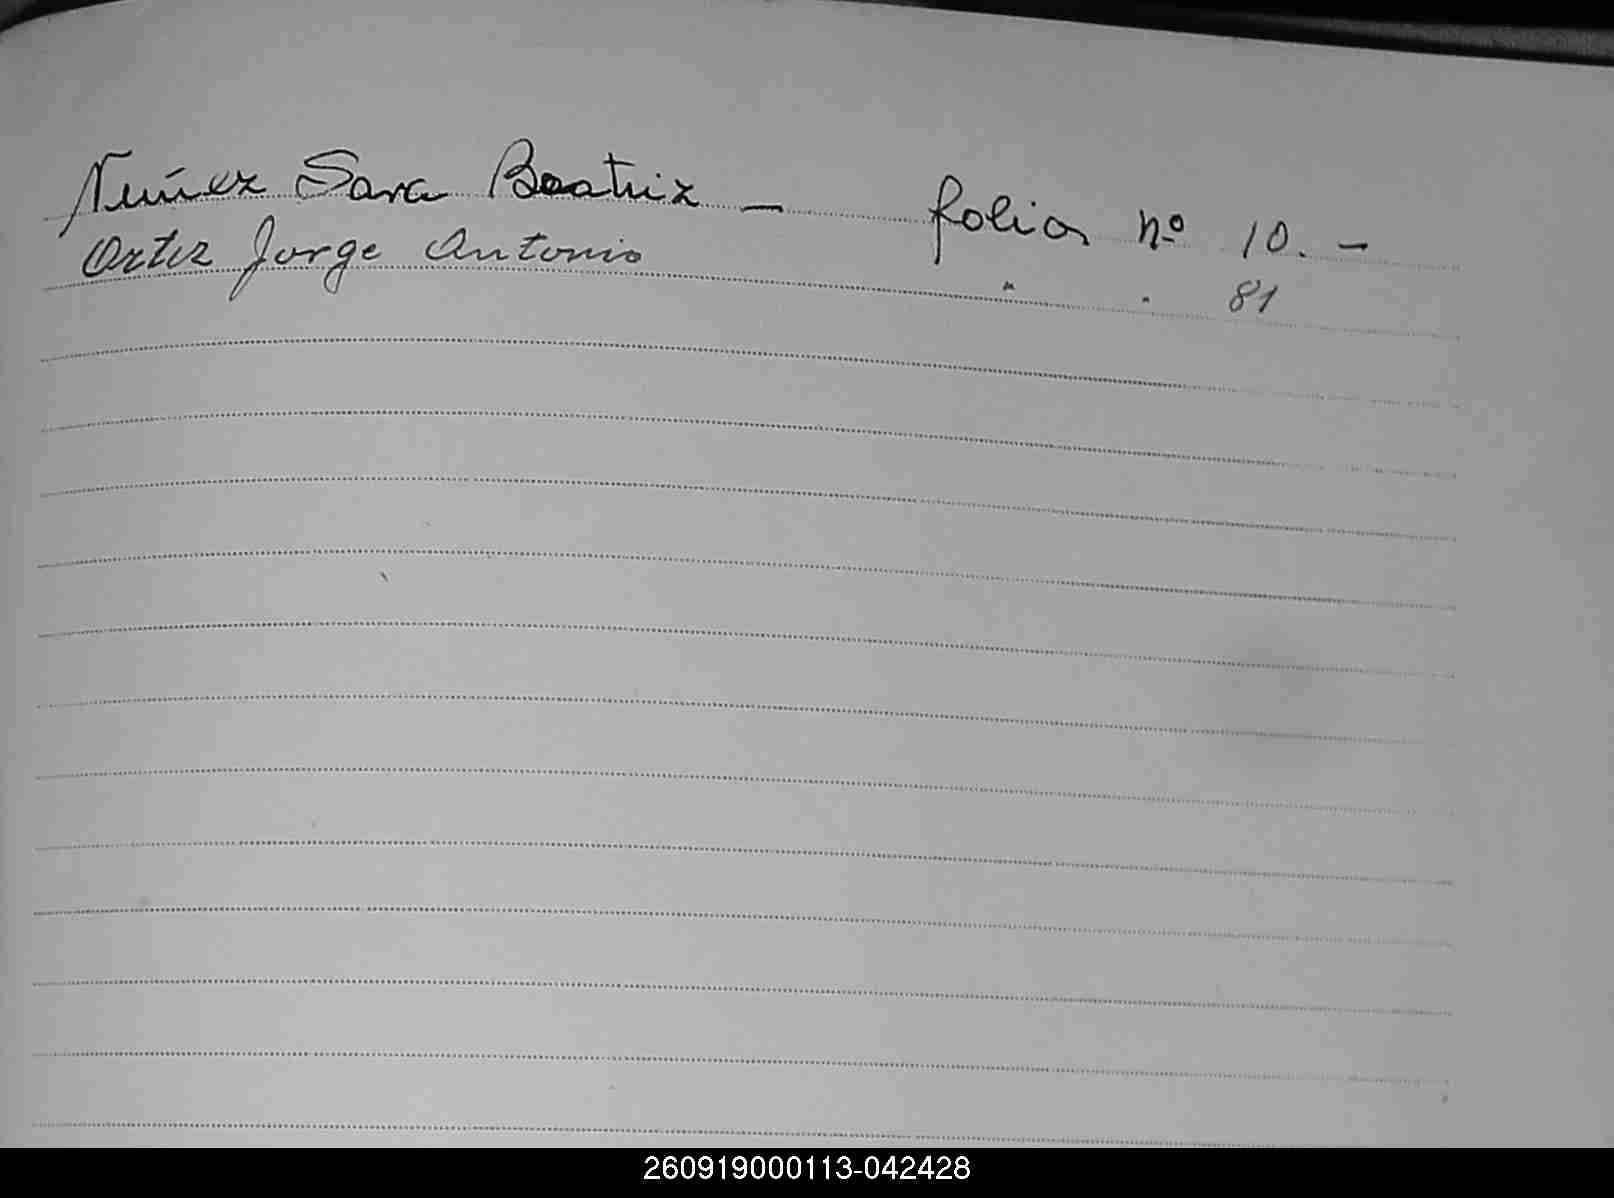 Nuñez Sara Beatriz — folios nº 10. —
Ortiz Jorge Antonio " " 81
260919000113-042428